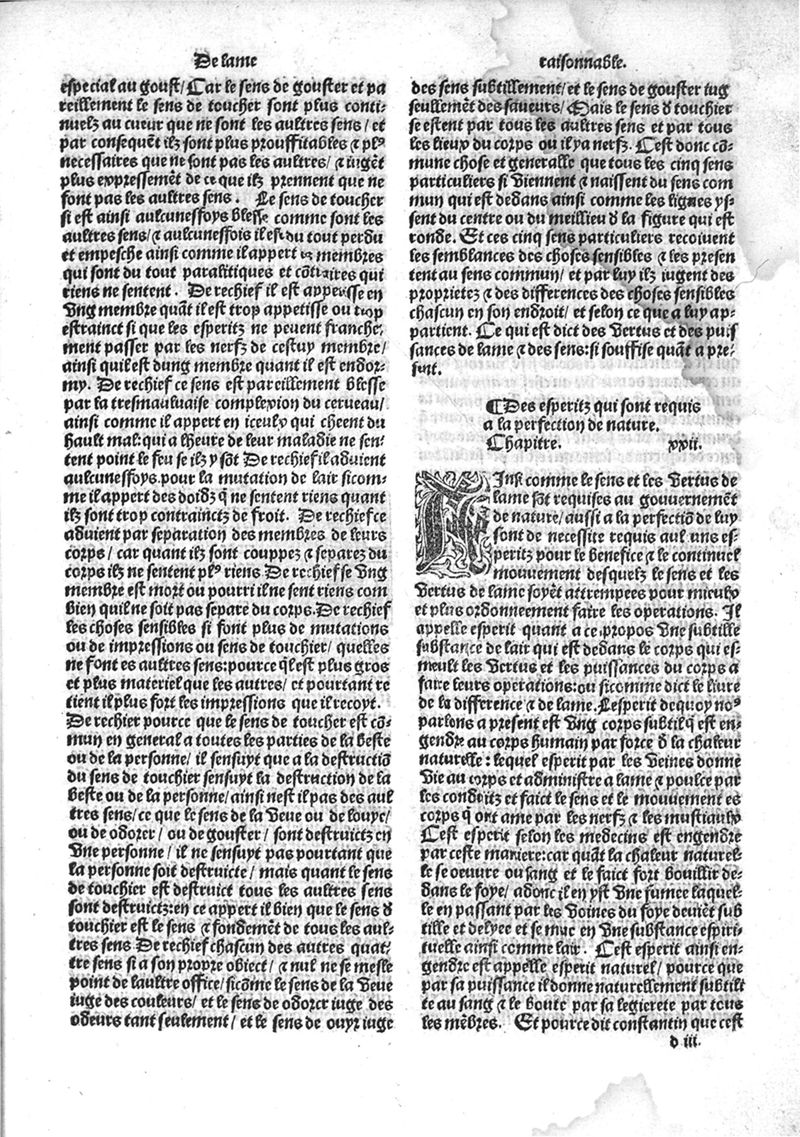 De lame
raisonnable.
especial au goust/ Car le sens de gouster et pa
reillement le sens de toucher sont plus conti-
nuelz au cueur que ne sont les aultres sens/ et
par consequẽt ilz sont plus prouffitables & plꝰ
necessaires que ne sont pas les aultres/ & iugẽt
plus expressemẽt de ce que ilz prennent que ne
font pas les aultres sens. Le sens de toucher
si est ainsi aulcuneffoys blesse comme sont les
aultres sens/ & aulcuneffois il est du tout perdu
et empesche ainsi comme il appert es membres
qui sont du tout paralitiques et cõtraires qui
riens ne sentent. De rechief il est appetisse en
vng membre quãt il est trop appetisse ou trop
estrainct si que les esperitz ne peuent franche-
ment passer par les nerfz de cestuy membre/
ainsi quil est dung membre quant il est endor-
my. De rechief ce sens est pareillement blesse
par la tresmauluaise complexion du cerueau/
ainsi comme il appert en iceulx qui cheent du
hault mal: qui a lheure de leur maladie ne sen-
tent point le feu se ilz y sõt De rechief il aduient
aulcuneffoys pour la mutation de lair sicom-
me il appert des doidz q̃ ne sentent riens quant
ilz sont trop contrainctz de froit. De rechief ce
aduient par separation des membres de leurs
corps/ car quant ilz sont couppez & separez du
corps ilz ne sentent plꝰ riens De rechief se vng
membre est mort ou pourri il ne sent riens com
bien quil ne soit pas separe du corps. De rechief
les choses sensibles si font plus de mutations
ou de impressions ou sens de touchier/ quelles
ne font es aultres sens: pource q̃l est plus gros
et plus materiel que les autres/ et pourtant re
tient il plus fort les impressions que il recoyt.
De rechier pource que le sens de toucher est cõ-
mun en general a toutes les parties de la beste
ou de la personne/ il sensuyt que a la destructiõ
du sens de touchier sensuyt la destruction de la
beste ou de la personne/ ainsi nest il pas des aul
tres sens/ ce que le sens de la veue ou de louye/
ou de odorer/ ou de gouster/ sont destruictz en
vne personne/ il ne sensuyt pas pourtant que
la personne soit destruicte/ mais quant le sens
de touchier est destruict tous les aultres sens
sont destruictz: en ce appert il bien que le sens d̃
touchier est le sens & fondemẽt de tous les aul-
tres sens De rechief chascun des autres quat-
tre sens si a son propre obiect/ & nul ne se mesle
point de laultre office/ sicõme le sens de la veue
iuge des couleurs/ et le sens de odorer iuge des
odeurs tant seulement/ et le sens de ouyr iuge
des sens subtillement/ et le sens de gouster iug
seullemẽt des saueurs/ Mais le sens d̃ touchier
se estent par tous les aultres sens et par tous
les lieux du corps ou il ya nerfz. Cest donc cõ-
mune chose et generalle que tous les cinq sens
particuliers si viennent & naissent du sens com
mun qui est dedans ainsi comme les lignes ys-
sent du centre ou du meillieu d̃ la figure qui est
ronde. Et ces cinq sens particuliers recoiuent
les semblances des choses sensibles & les presen
tent au sens commun/ et par luy ilz iugent des
proprietez & des differences des choses sensibles
chascun en son endroit/ et selon ce que a luy ap-
partient. Ce qui est dict des vertus et des puis
sances de lame & des sens: si souffise quãt a pre-
sent.
¶ Des esperitz qui sont requis
a la perfection de nature.
Chapitre. xxii.
AInsi comme le sens et les vertus de
lame sõt requises au gouuernemẽt
de nature/ aussi a la perfectiõ de luy
sont de necessite requis aulcuns es-
peritz pour le benefice & le continuel
mouuement desquelz le sens et les
vertus de lame soyẽt attrempees pour mieulx
et plus ordonneement faire les operations. Il
appelle esperit quant a ce propos vne subtille
substance de lair qui est dedans le corps qui es-
meult les vertus et les puissances du corps a
faire leurs operations: ou sicomme dict le liure
de la difference & de lame. Lesperit dequoy noꝰ
parlons a present est vng corps subtil q̃ est en-
gendre au corps humain par force d̃ la chaleur
naturelle: lequel esperit par les veines donne
vie au corps et administre a lame & poulce par
les conduitz et faict le sens et le mouuement es
corps q̃ ont ame par les nerfz & les mustiaulx
Cest esperit selon les medecins est engendre
par ceste maniere: car quãt la chaleur naturel-
le se oeuure ou sang et le faict fort bouillir de-
dans le foye/ adonc il en yst vne fumee laquel-
le en passant par les voines du foye deuiẽt sub
tille et delyee et se mue en vne substance espiri-
tuelle ainsi comme lair. Cest esperit ainsi en-
gendre est appelle esperit naturel/ pource que
par sa puissance il donne naturellement subtili
te au sang & le boute par sa legierete par tous
les mẽbres. Et pource dit constantin que cest
d iii.